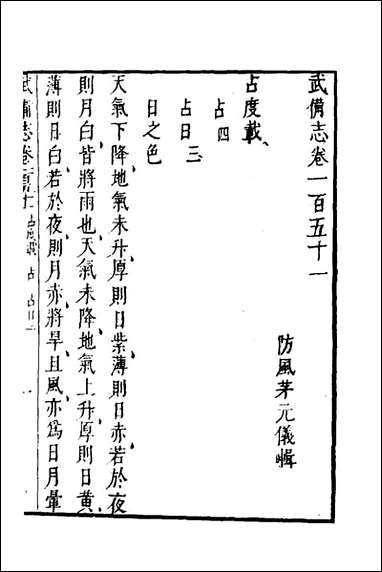 武備志卷一百五十一
防風茅元儀輯
占度載
占四
占日三
日之色
天氣下降地氣未升厚則日紫薄則日赤若於夜
則月白皆將雨也天氣未降地氣上升厚則日黃
薄則日白若於夜則月赤將旱且風亦爲日月暈
武備志卷
占度載 占 占日三 一